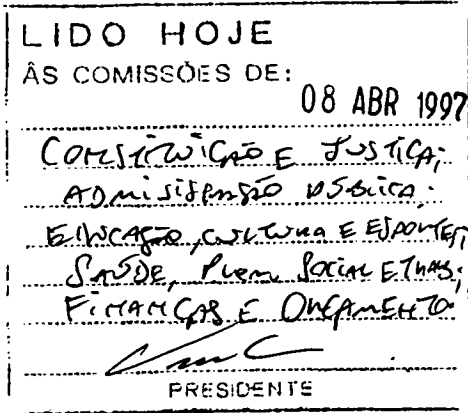 LIDO HOJE
ÀS COMISSÕES DE:
08 ABR 1997
CONSTITUIÇÃO E JUSTIÇA;
ADMINISTRAÇÃO PÚBLICA;
EDUCAÇÃO, CULTURA E ESPORTES;
SAÚDE, PROM. SOCIAL E TRAB.;
FINANÇAS E ORÇAMENTO
PRESIDENTE